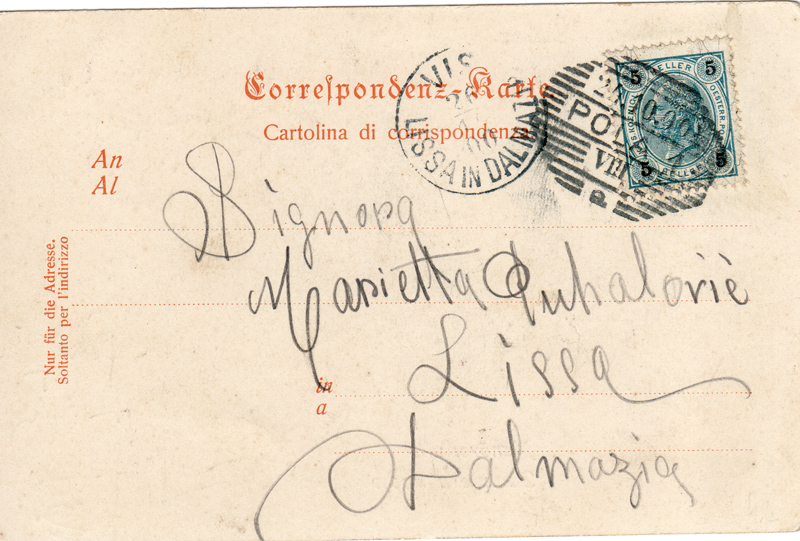 Correspondenz-Karte
Cartolina di corrispondenza
An
Al
Nur für die Adresse.
Soltanto per l'indirizzo
VIS
LISSA IN DALMAZIA
POL
VIII
P
5 HELLER 5
5 5
Signora
Marietta
Lissa
in
a
Dalmazia